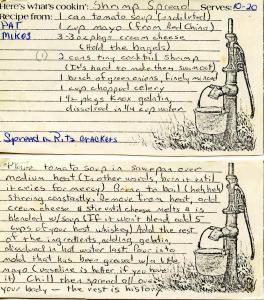 Here's what's cookin': Shrimp Spread Serves: 10-20
Recipe from: 1 can tomato soup (undiluted)
PAT 1 cup mayo (from Red China)
MIKOS 3-3oz pkgs cream cheese
(Hold the bagels)
2 cans tiny cocktail shrimp
(It's hard to make them
1 bunch of green onions, finely minced
1 cup chopped celery
1½ pkgs Knox gelatin
dissolved in ¼ cup water
Spread on Ritz crackers
Place tomato soup in saucepan over
medium heat (In other words, burn it until
it cries for mercy) Bring to boil (heh, heh)
stirring constantly. Remove from heat, add
cream cheese & stir until cheese melts & is
blended w/soup (If it won't blend add 5
cups of your best whiskey) Add the rest
of the ingredients, adding gelatin
dissolved in hot water last. Pour into
mold that has been greased w/a little
mayo (vaseline is better if you have
it) Chill then spread all over
your body - the rest is history